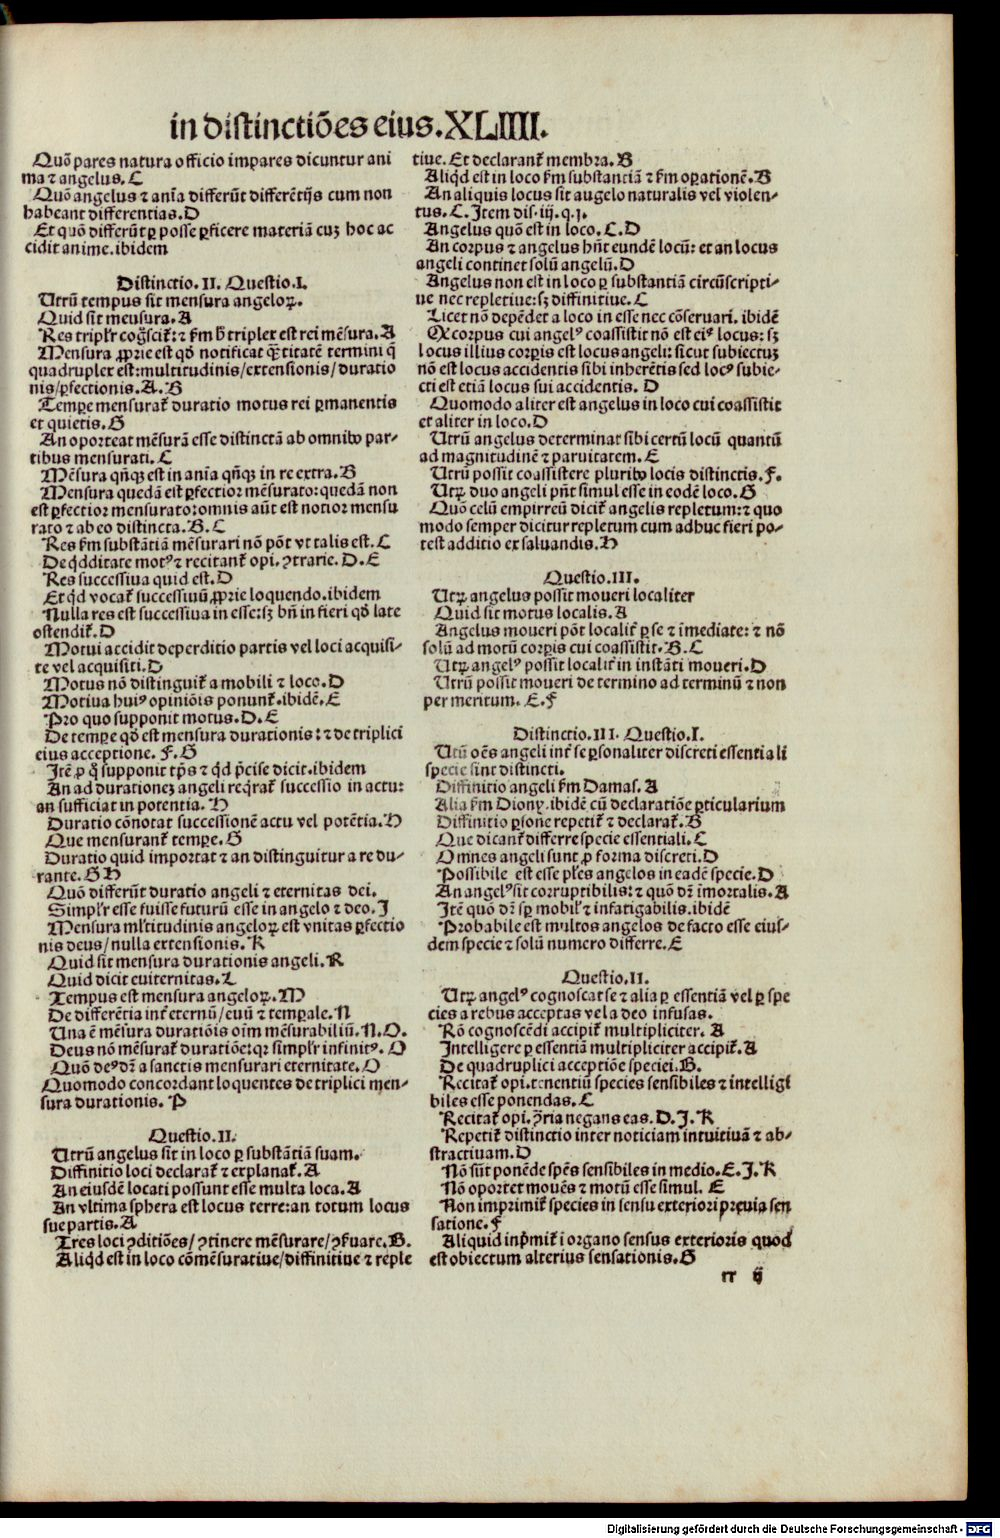 in distinctiões eius.XLIIII.
Quõ pares natura officio impares dicuntur ani
ma ⁊ angelus.C
Quõ angelus ⁊ anĩa differũt differẽtijs cum non
habeant differentias.D
Et quõ differũt ꝑ posse ꝑficere materiã cuꝫ hoc ac
cidit anime.ibidem
Distinctio.II.Questio.I.
Utrũ tempus sit mensura angeloꝝ.
Quid sit mensura.A
Mensura ꝓprie est qđ notificat
quadruplex est:multitudinis/extensionis/duratio
nis/ꝑfectionis.A.B
Tempore mensurat᷑ duratio motus rei ꝑmanentis
et quietis.G
An oporteat mẽsurã esse distinctã ab omnibꝰ par-
tibus mensurati.C
Mẽsura qñqꝫ est in anĩa qñqꝫ in re extra.B
Mensura quedã est ꝑfectior mẽsurato:quedã non
est ꝑfectior mensurato:omnis aũt est notior mensu
rato ⁊ ab eo distincta.B.C
Res ẜm substãtiã mẽsurari nõ põt vt talis est.C
De qdditate motꝰ ⁊ recitant᷑ opi.ꝯtrarie.D.E
Res successiua quid est.D
Et qđ vocat᷑ successiuũ ꝓprie loquendo.ibidem
Nulla res est successiua in esse:sꝫ bñ in fieri qđ late
ostendit᷑.D
Motui accidit deperditio partis vel loci acquisi-
te vel acquisiti.D
Motus nõ distinguit᷑ a mobili ⁊ loco.D
Motiua huiꝰ opiniõis ponunt᷑.ibidẽ.E
Pro quo supponit motus.D.E
De tempe qđ est mensura durationis:⁊ de triplici
eius acceptione.F.G
Itẽ ꝓ q̃ supponit tp̃s ⁊ qđ p̃cise dicit.ibidem
An ad durationeꝫ angeli reqrat᷑ successio in actu:
an sufficiat in potentia.H
Duratio cõnotat successionẽ actu vel potẽtia.H
Que mensurant᷑ tempe.G
Duratio quid importat ⁊ an distinguitur a re du-
rante.G H
Quõ differũt duratio angeli ⁊ eternitas dei.
Simplr esse fuisse futurũ esse in angelo ⁊ deo.I
Mensura ml̃titudinis angeloꝝ est vnitas ꝑfectio
nis deus/nulla extensionis.K
Quid sit mensura durationis angeli.K
Quid dicit euiternitas.L
Tempus est mensura angeloꝝ.M
De differẽtia int᷑ eternũ/euũ ⁊ tempale.N
Una ẽ mẽsura duratiõis oĩm mẽsurabiliũ.N.O.
Deus nõ mẽsurat᷑ duratiõe:qꝛ simplr infinitꝰ.O
Quõ deꝰ dr̃ a sanctis mensurari eternitate.O
Quomodo concordant loquentes de triplici men-
sura durationis.P
Questio.II.
Utrũ angelus sit in loco ꝑ substãtiã suam.
Diffinitio loci declarat᷑ ⁊ explanat᷑.A
An eiusdẽ locati possunt esse multa loca.A
An vltima sphera est locus terre:an totum locus
sue partis.A
Tres loci ꝯditiões/ꝯtinere mẽsurare/ꝯẜuare.B.
Aliqđ est in loco cõmẽsuratiue/diffinitiue ⁊ reple
tiue.Et declarant᷑ membra.B
Aliqđ est in loco ẜm substantiã ⁊ ẜm oꝑationẽ.B
An aliquis locus sit angelo naturalis vel violen-
tus.C.Item dis.iij.q.j.
Angelus quõ est in loco.C.D
An corpus ⁊ angelus hñt eundẽ locũ:et an locus
angeli continet solũ angelũ.D
Angelus non est in loco ꝑ substantiã circũscripti-
ue nec repletiue:sꝫ diffinitiue.C
Licet nõ depẽdet a loco in esse nec cõseruari.ibidẽ
Qꝫ corpus cui angelꝰ coassistit nõ est eiꝰ locus:sꝫ
locus illius corꝑis est locus angeli:sicut subiectuꝫ
nõ est locus accidentis sibi inherẽtis sed locꝰ subie-
cti est etiã locus sui accidentis.D
Quomodo aliter est angelus in loco cui coassistit
et aliter in loco.D
Utrũ angelus determinat sibi certũ locũ quantũ
ad magnitudinẽ ⁊ paruitatem.E
Utrũ possit coassistere pluribꝰ locis distinctis.F.
Utꝝ duo angeli pñt simul esse in eodẽ loco.G
Quõ celũ empirreũ dicit᷑ angelis repletum:⁊ quo
modo semper dicitur repletum cum adhuc fieri po-
test additio ex saluandis.H
Questio.III.
Utꝝ angelus possit moueri localiter
Quid sit motus localis.A
Angelus moueri põt localit᷑ ꝑ se ⁊ ĩmediate:⁊ nõ
solũ ad motũ corꝑis cui coassistit.B.C
Utꝝ angelꝰ possit localit᷑ in instãti moueri.D
Utrũ possit moueri de termino ad terminũ ⁊ non
per meritum.E.F
Distinctio.III.Questio.I.
Utrũ oẽs angeli int᷑ se ꝑsonaliter discreti essentiali
specie sint distincti.
Diffinitio angeli ẜm Damas.A
Alia ẜm Diony.ibidẽ cũ declaratiõe ꝑticularium
Diffinitio ꝑsone repetit᷑ ⁊ declarat᷑.B
Que dicant᷑ differre specie essentiali.C
Omnes angeli sunt ꝓ forma discreti.D
Possibile est esse pl̃es angelos in eadẽ specie.D
An angelꝰ sit corruptibilis:⁊ quõ dr̃ ĩmortalis.A
Itẽ quõ dr̃ sꝑ mobil᷑ ⁊ infatigabilis.ibidẽ
Probabile est multos angelos de facto esse eius-
dem specie ⁊ solũ numero differre.E
Questio.II.
Utꝝ angelꝰ cognoscat se ⁊ alia ꝑ essentiã vel ꝑ spe
cies a rebus acceptas vel a deo infusas.
Rõ cognoscẽdi accipit᷑ multipliciter.A
Intelligere ꝑ essentiã multipliciter accipit᷑.A
De quadruplici acceptiõe speciei.B.
Recitat᷑ opi.tenentiũ species sensibiles ⁊ intelligi
biles esse ponendas.C
Recitat᷑ opi.ꝯ̃ria negans eas.D.I.K
Repetit᷑ distinctio inter noticiam intuitiuã ⁊ ab-
stractiuam.D
Nõ sũt ponẽde spẽs sensibiles in medio.E.I.K
Nõ oportet mouẽs ⁊ motũ esse simul.E
Non imprimit᷑ species in sensu exteriori preuia sen
satione.F
Aliquid inp̃mit᷑ i organo sensus exterioris quod
est obiectum alterius sensationis.G
rr ij
Digitalisierung gefördert durch die Deutsche Forschungsgemeinschaft - DFG